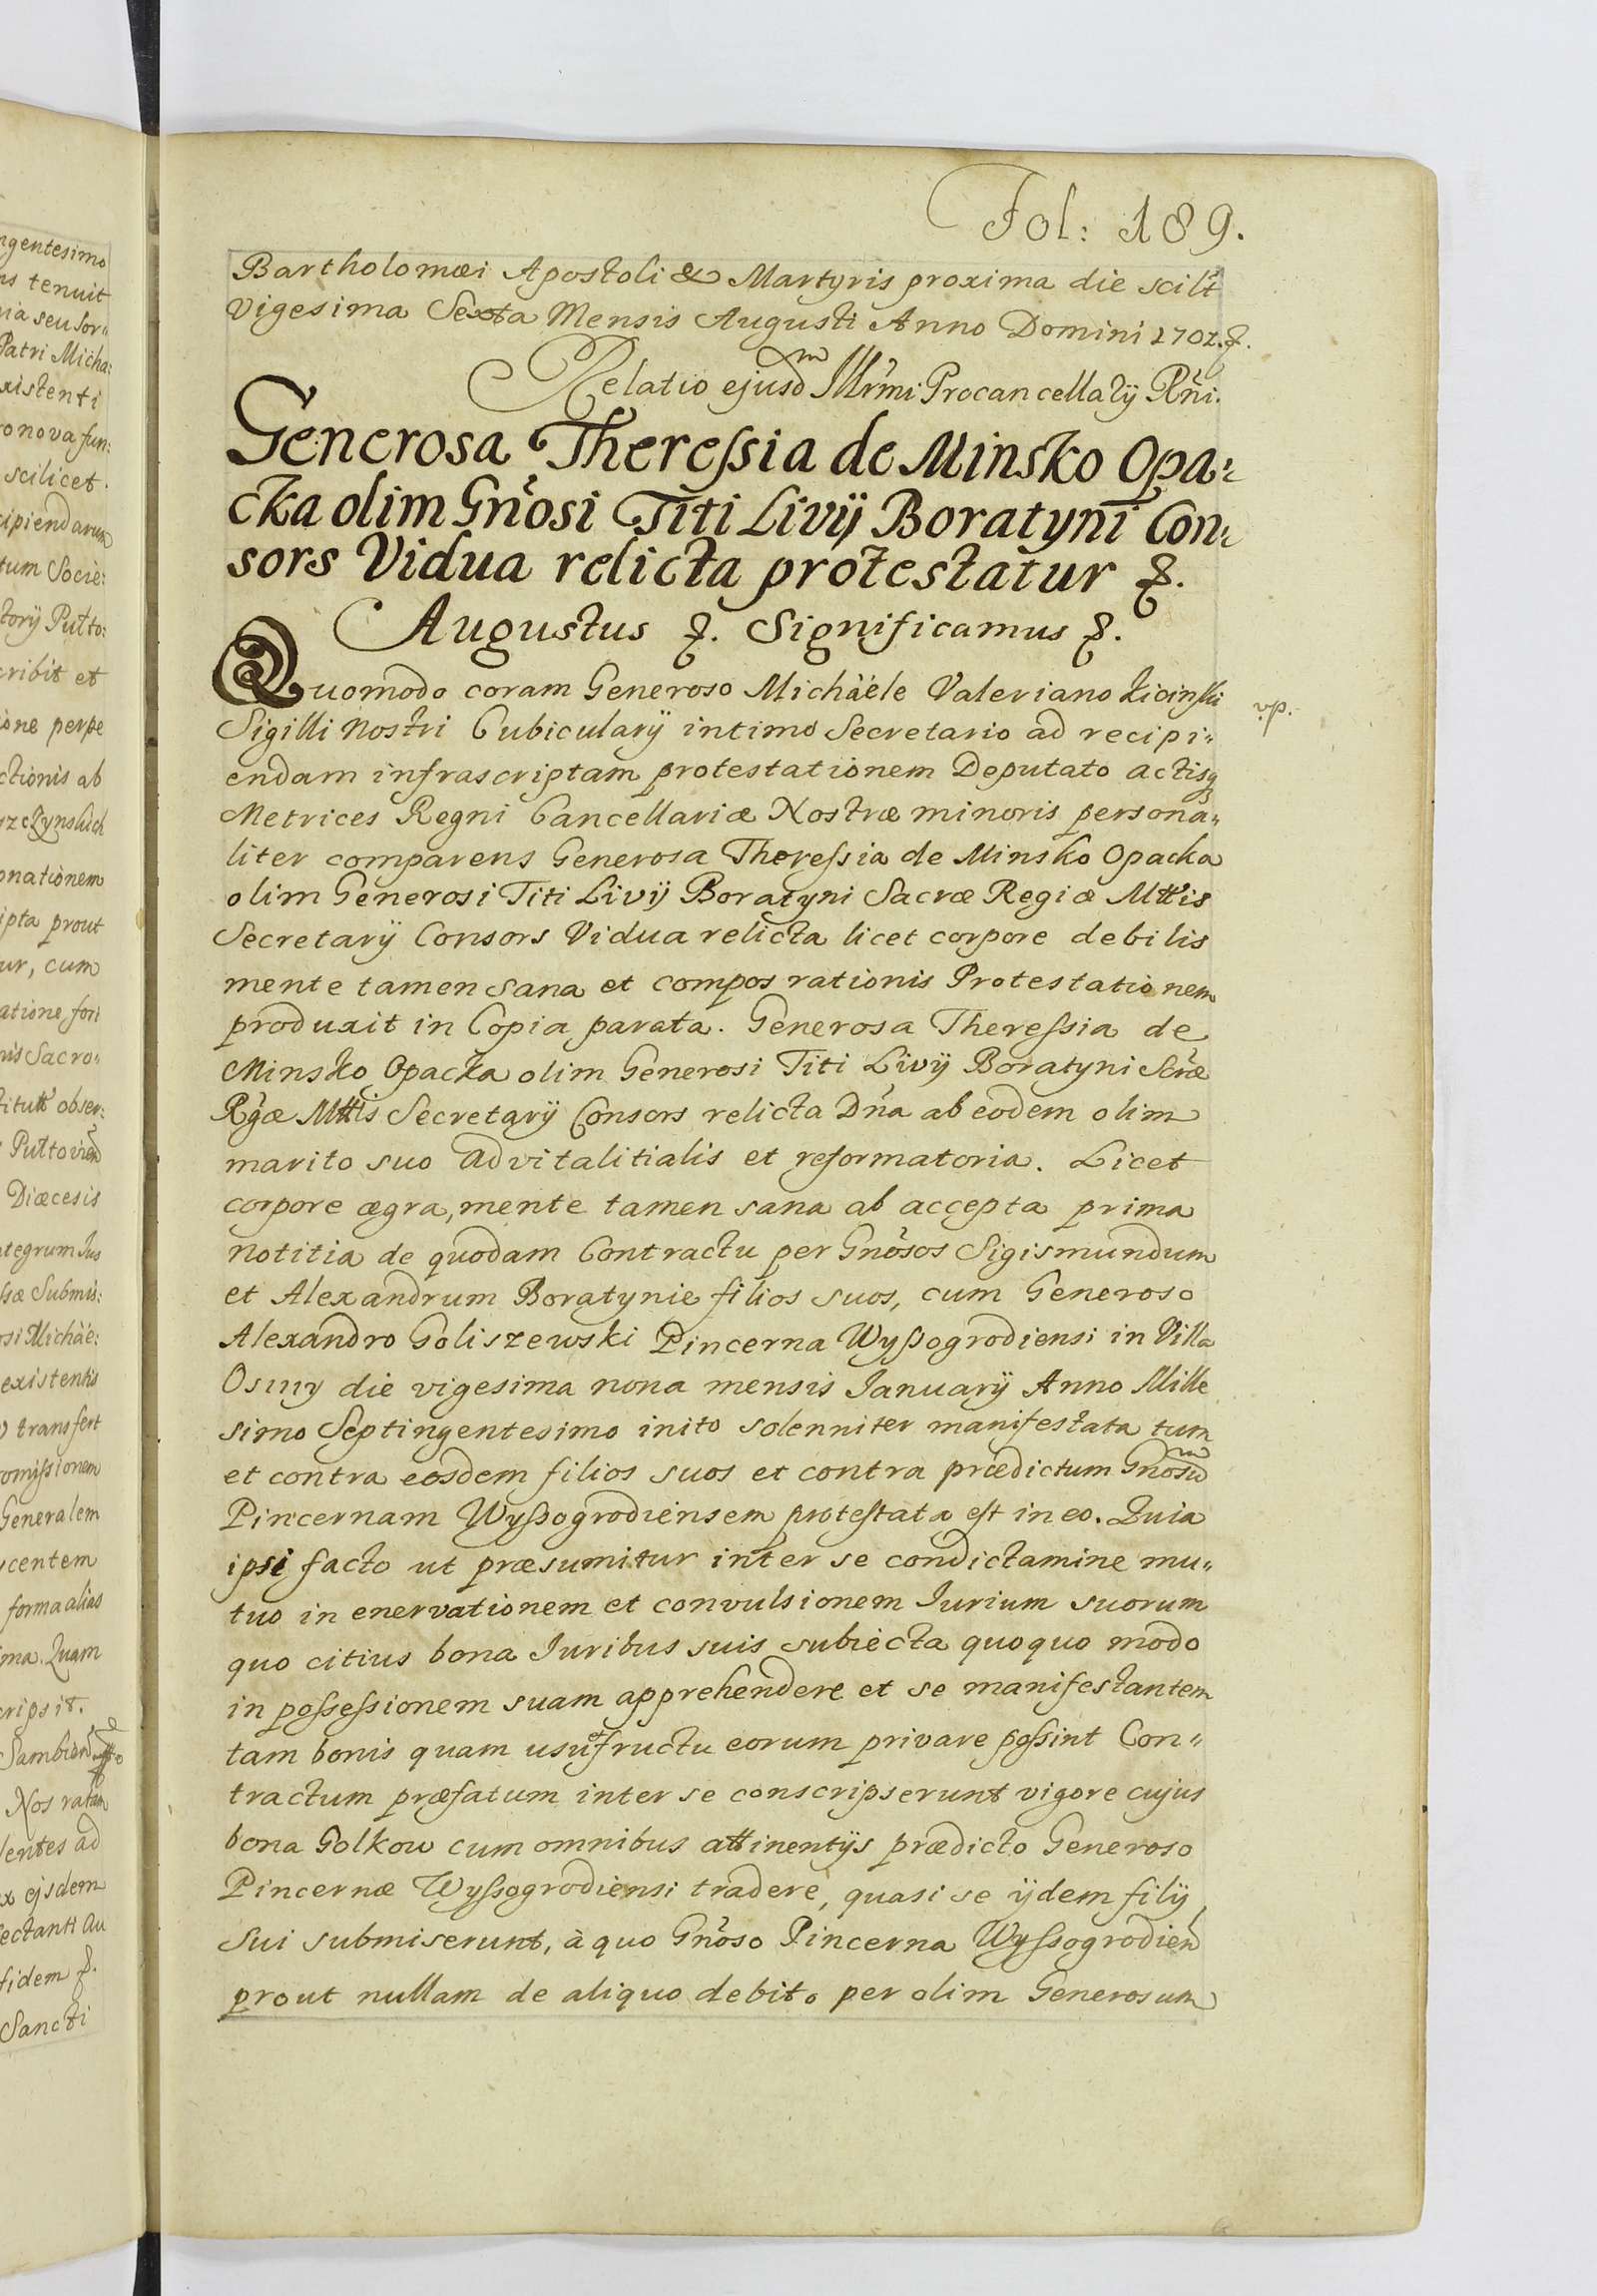 ngentesimo
ns tenuit
Patri Micha:
xistenti
ro nova fun:
scilicet.
cipiendarum
tum Socie:
torÿ Pulto:
cribit et
ione perpe
ctionis ab
szczynskich
onationem
ipta prout
ur, cum
atione fori
nis Sacro:
titutt obser:
Pultovien
Diæcesis
ntegrum Ius
ssæ Submis:
osi Michàé:
existentis
transfert
omissionem
Generalem
centem
forma alias
ma. Quam
cripsit.
Nos ratam
lentes ad
ejsdem
fectanti au
fidem
Sancti
Fol: 189.
Bartholomæi Apostoli & Martyris proxima die scilt
vigesima Sexta Mensis Augusti Anno Domini 1702. &.
Relatio ejusdm Illrmi Procancellarÿ Rñi.
Generosa Theressia de Minsko Opa:
cka olim Gñosi Titi Livÿ Boratyni Con:
sors Vidua relicta protestatur &.
Augustus &. Significamus &.
Quomodo coram Generoso Michàéle Valeriano Kicinski
Sigilli Nostri Cubicularÿ intimo Secretario ad recipi:
endam infrascriptam protestationem Deputato actisq
Metrices Regni Cancellariæ Nostræ minoris persona:
liter comparens Generosa Theressia de Minsko Opacka
olim Generosi Titi Livÿ Boratyni Sacræ Regiæ Mttis
Secretarÿ Consors Vidua relicta licet corpore debilis
mente tamen sana et compos rationis Protestationem
produxit in Copia parata. Generosa Theressia de
Minsko Opacka olim Generosi Titi Livÿ Boratyni Scræ
Rgæ Mttis Secretarÿ Consors relicta Dña ab eodem olim
marito suo advitalitialis et reformatoria. Licet
corpore ægra, mente tamen sana ab accepta prima
notitia de quodam Contractu per Gñosos Sigismundum
et Alexandrum Boratynie filios suos, cum Generoso
Alexandro Goliszewski Pincerna Wyssogrodiensi in Villa
Osiny die vigesima nona mensis Ianuarÿ Anno Mille
simo Septingentesimo inito solenniter manifestata tum
et contra eosdem filios suos et contra prædictum Gñosum
Pincernam Wyssogrodiensem protestata est in eo. Quia
ipsi facto ut præsumitur inter se condictamine mu:
tuo in enervationem et convulsionem Iurium suorum
quo citius bona Iuribus suis subiecta quoquo modo
in possessionem suam apprehendere et se manifestantem
tam bonis quam usufructu eorum privare possint Con:
tractum præfatum inter se conscripserunt vigore cujus
bona Golkow cum omnibus attinentÿs prædicto Generoso
Pincernæ Wyssogrodiensi tradere, quasi se ÿdem filÿ
sui submiserunt, à quo Gñoso Pincerna Wyssogrodien
prout nullam de aliquo debito per olim Generosum
vp.